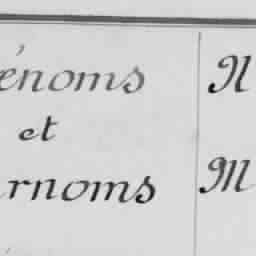 énoms
et
rnoms
N
M